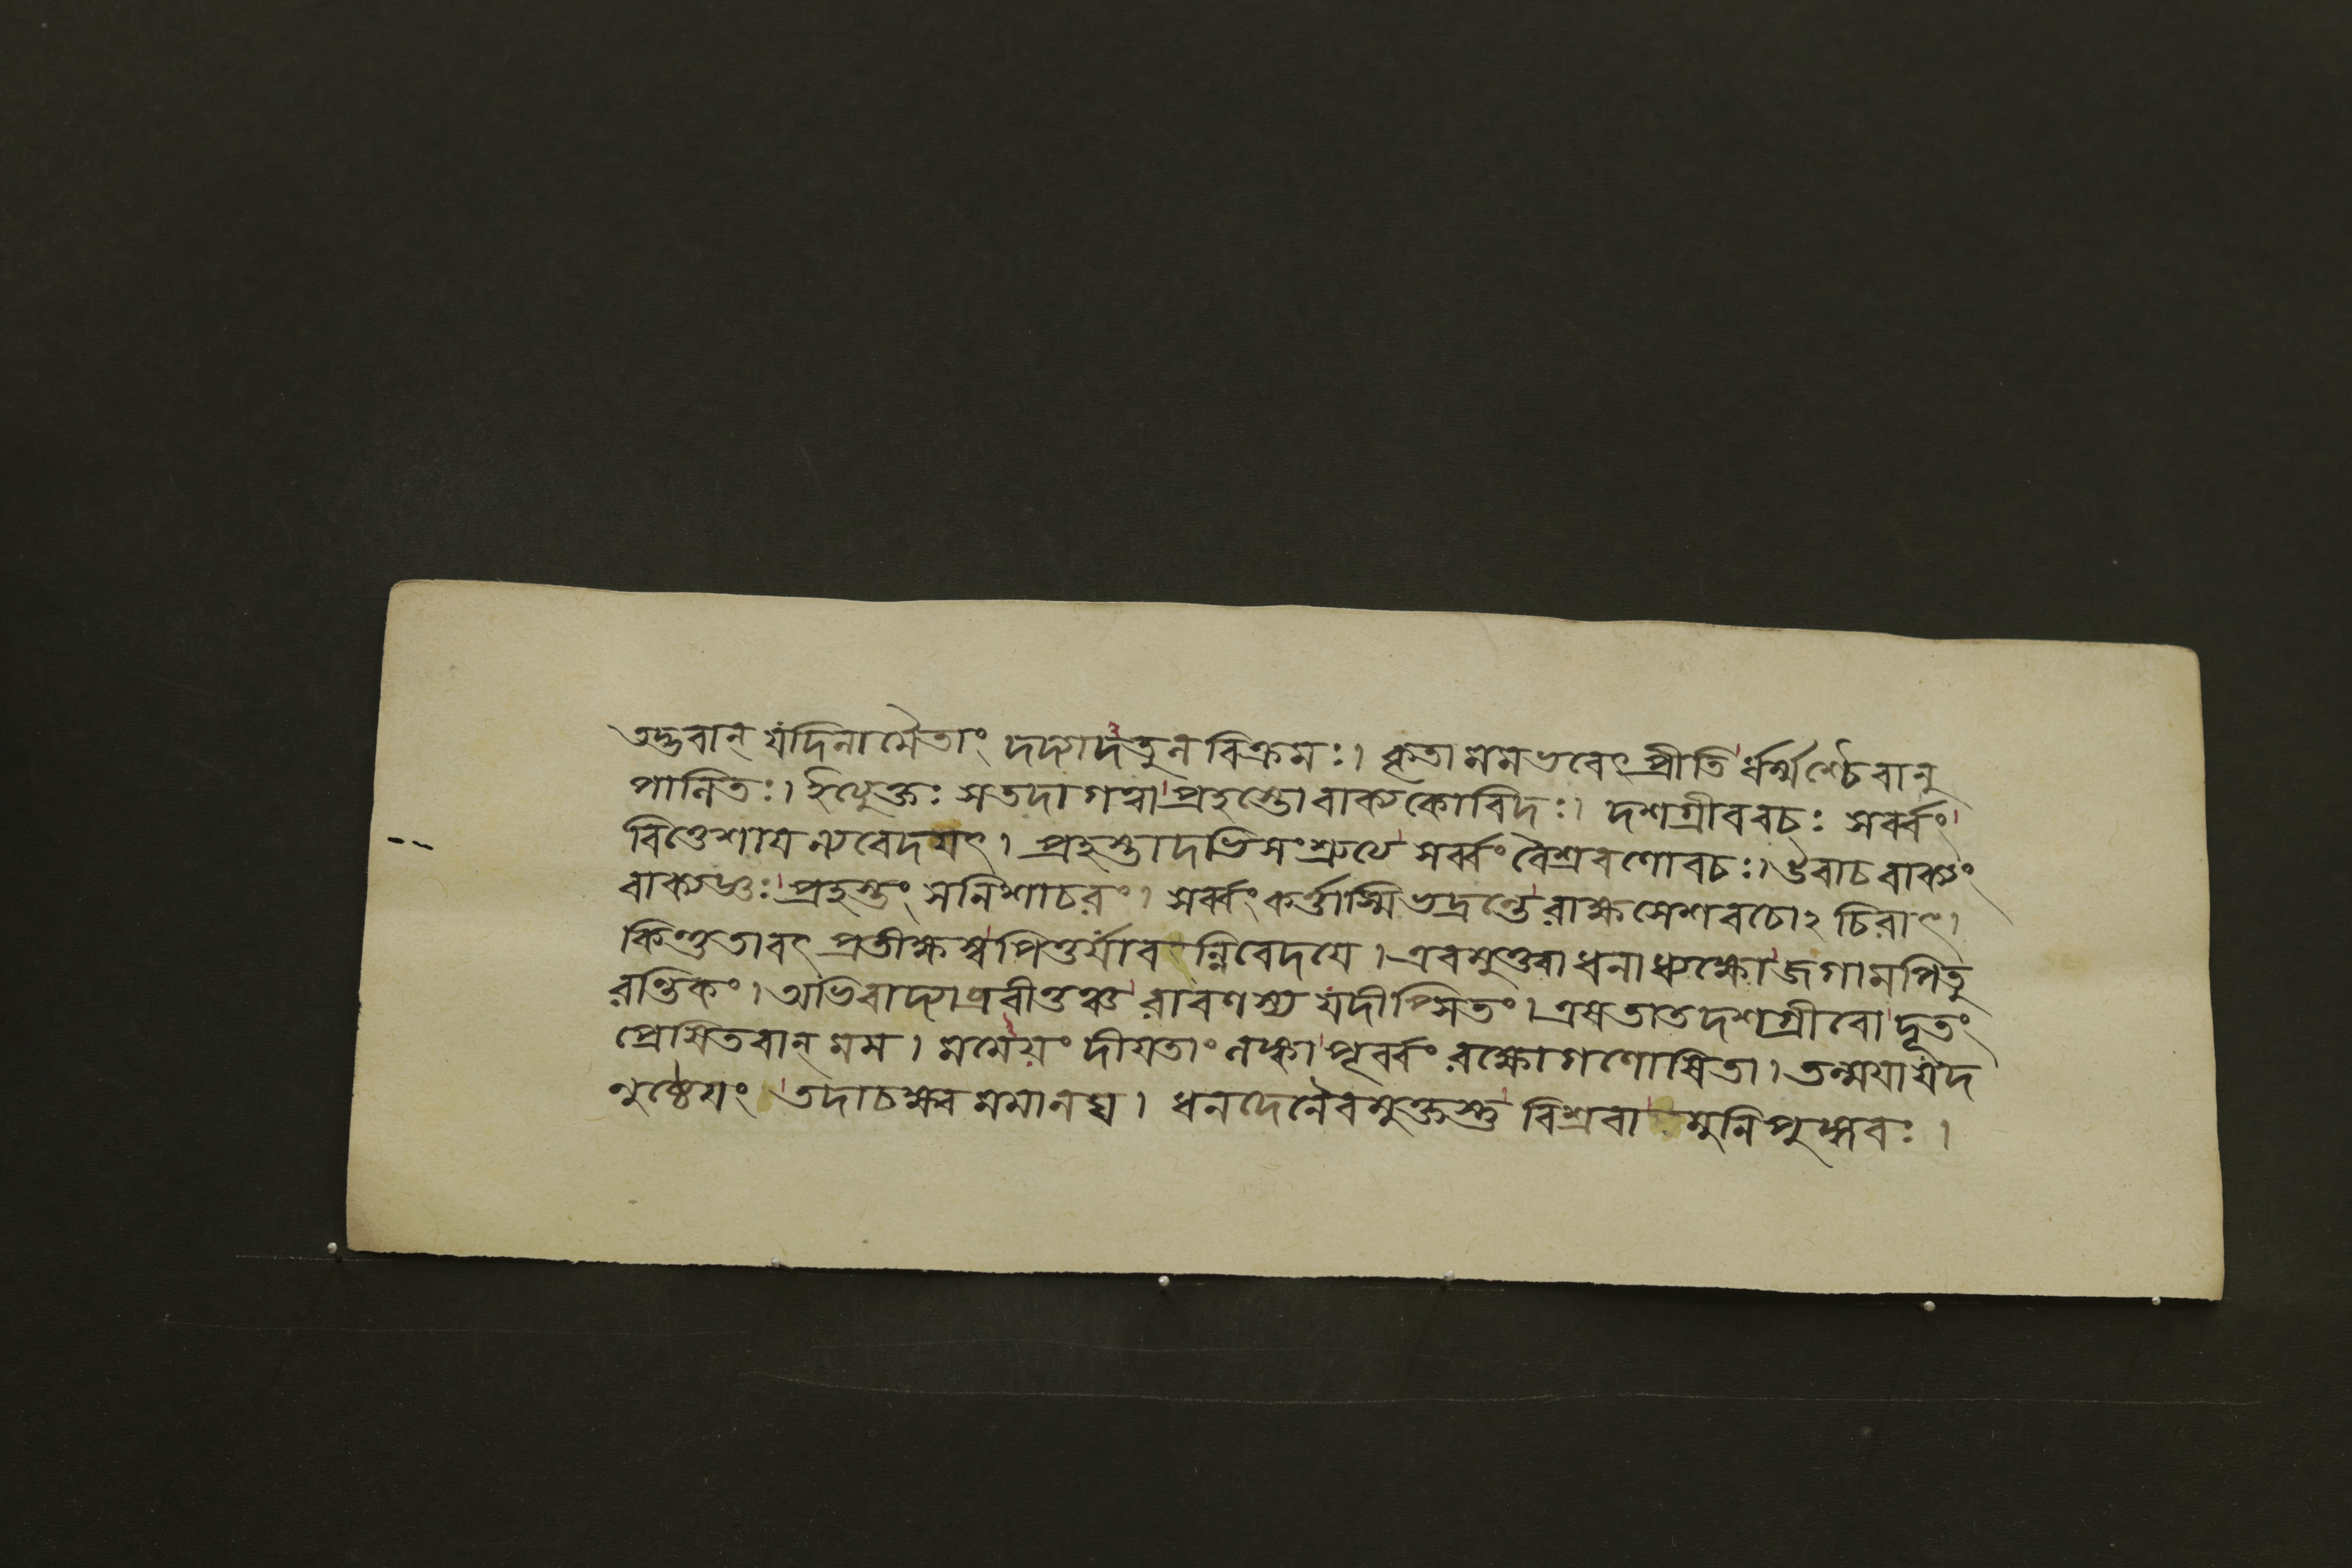 তদ্ভবান্ যদি নামৈতাং দদ্যাদতুনবিক্রমঃ। কৃতা মম ভবেৎ প্রীতি র্ধর্ম্মশ্চৈবানু
পানিতঃ। ইত্যুক্তঃ স তদা গত্বা প্রহস্তো বাক্যকোবিদঃ। দশগ্রীববচঃ সর্ব্বং
বিত্তেশায ন্যবেদযৎ। প্রহস্তাদভিসংশ্রুত্য সর্ব্বং বৈশ্রবণো বচঃ। উবাচ বাক্যং
বাক্যজ্ঞঃ প্রহস্তং স নিশাচরং। সর্ব্বং কর্ত্তাস্মি ভদ্রন্তে রাক্ষসেশবচোঽচিরাৎ।
কিন্তু তাবৎ প্রতীক্ষস্ব পিতুর্যাবন্নিবেদযে। এবমুক্ত্বা ধনাধ্যক্ষো জগাম পিতু
রন্তিকং। অভিবাদ্যাব্রবীত্তঞ্চ রাবণস্য যদীপ্সিতং। এষ তাত দশগ্রীবো দূতং
প্রেষিতবান্ মম। মমেযং দীযতাং লঙ্কা পূর্ব্বং রক্ষোগণোষিতা। তন্মযা যদ
নুষ্ঠেযং তদাচক্ষ্ব মমানঘ। ধনদেনৈবমুক্তস্তু বিশ্রবা মুনিপুঙ্গবঃ।